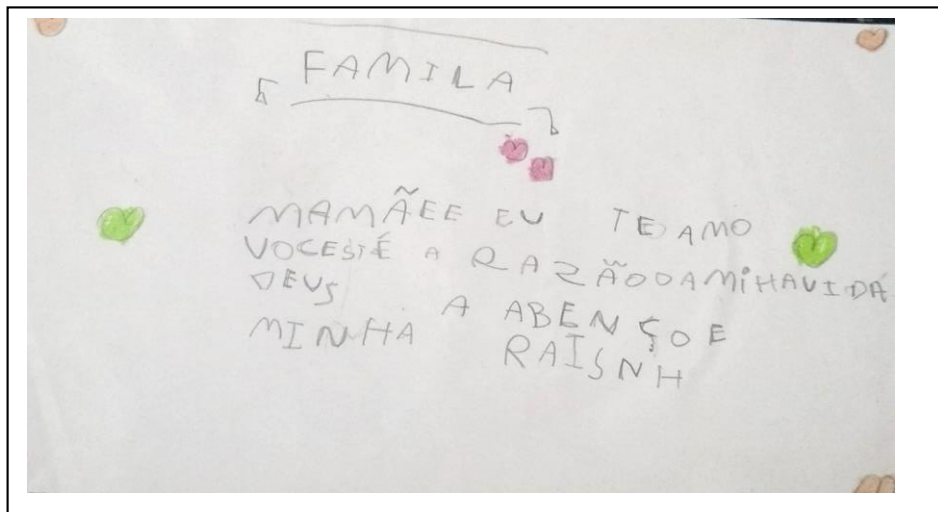 FAMILA
MAMÃEE EU TE AMO
VOCESTÉ A RAZÃODAMIHAVIDA
DEUS A ABENÇOE
MINHA RAISNH